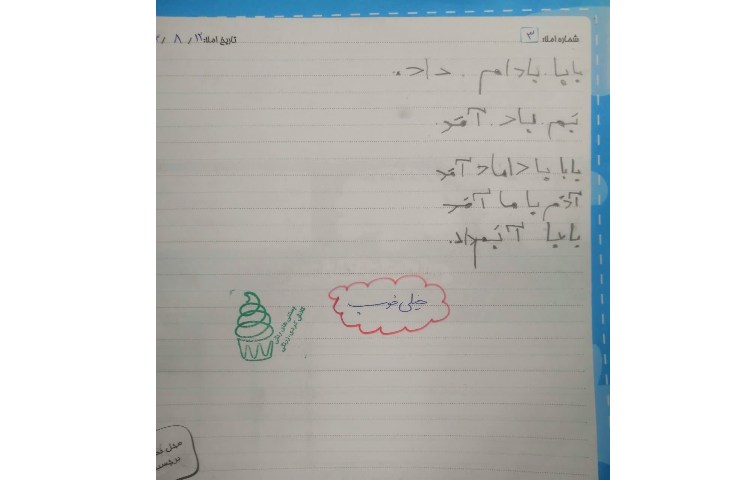 شماره املا: ۳
تاریخ املا: ۱۲ / ۸ /
بابا بادام داد.
بم باد آمد.
بابا با داماد آمد
آدم با ما آمد
بابا آبم داد.
خیلی خوب